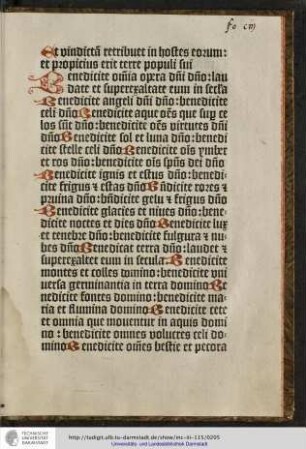 fo cni
Et vindictā retribuet in hostes eorum:
et propicius erit terre populi sui
Benedicite om̄ia opera dn̄i dn̄o: lau
date et superexaltate eum in secl'a
Benedicite angeli dn̄i dn̄o: benedicite
celi dn̄o Benedicite aque oēs que sup ce
los sūt dn̄o: benedicite oēs virtutes dn̄i
dn̄o Benedicite sol et luna dn̄o: benedi
cite stelle celi dn̄o Benedicite oīs ymber
et ros dn̄o: benedicite oīs spūs dei dn̄o
Benedicite ignis et estus dn̄o: benedi-
cite frigus & estas dn̄o Bn̄dicite rores &
pruina dn̄o: bn̄dicite gelu & frigus dn̄o
Benedicite glacies et niues dn̄o: bene
dicite noctes et dies dn̄o Benedicite lux
et tenebre dn̄o: benedicite fulgura & nu
bes dn̄o Benedicat terra dn̄o: laudet &
superexaltet eum in secula Benedicite
montes et colles domino: benedicite vni
uersa germinantia in terra domino Be
nedicite fontes domino: benedicite ma
ria et flumina domino Benedicite cete
et omnia que mouentur in aquis domi
no: benedicite omnes volucres celi do-
mino Benedicite om̄es bestie et pecora
TECHNISCHE
UNIVERSITÄT
DARMSTADT
http://tudigit.ulb.tu-darmstadt.de/show/inc-iii-123/0295
Universitäts- und Landesbibliothek Darmstadt